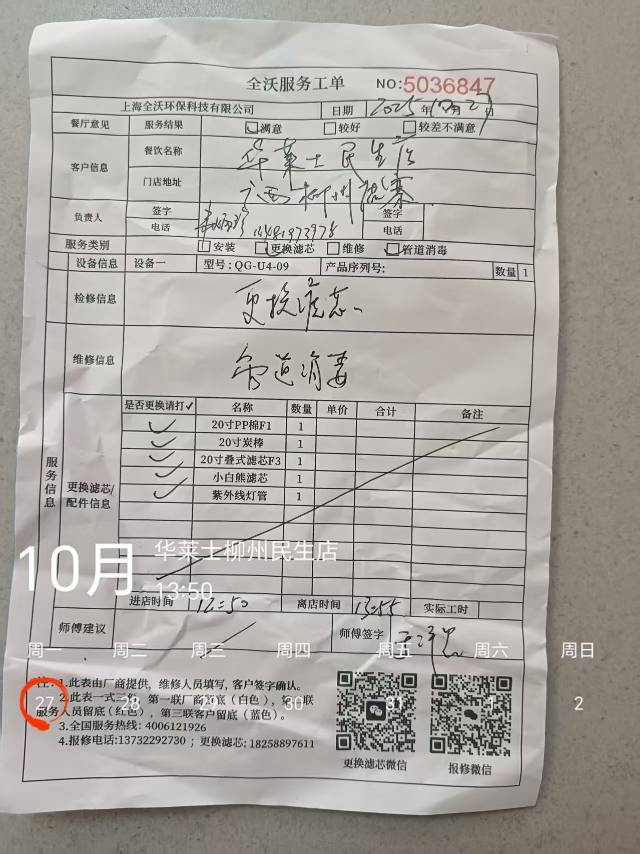 全沃服务工单 NO:5036847
上海全沃环保科技有限公司 日期 2025年10月27日
餐厅意见 服务结果 ☑满意 □较好 □较差不满意
客户信息 餐饮名称 华莱士民生店
门店地址 广西柳州
负责人 签字 签字
电话 电话
服务类别 □安装 ☑更换滤芯 □维修 ☑管道消毒
服务信息
设备信息 设备一 型号:QG-U4-09 产品序列号: 数量 1
检修信息 更换滤芯
维修信息 管道消毒
更换滤芯/配件信息
是否更换请打✓ 名称 数量 单价 合计 备注
✓ 20寸PP棉F1 1
✓ 20寸炭棒 1
✓ 20寸叠式滤芯F3 1
✓ 小白熊滤芯 1
✓ 紫外线灯管 1
10月 华莱士柳州民生店
13:50
进店时间 12:50 离店时间 13:55 实际工时
师傅建议 师傅签字
周一 周二 周三 周四 周五 周六 周日
27 28 29 30 31 1 2
注:1.此表由厂商提供，维修人员填写，客户签字确认。
2.此表一式三份，第一联厂商留底（白色），第二联
服务人员留底（红色），第三联客户留底（蓝色）。
3.全国服务热线: 4006121926
4.报修电话:13732292730 ; 更换滤芯: 18258897611
更换滤芯微信 报修微信